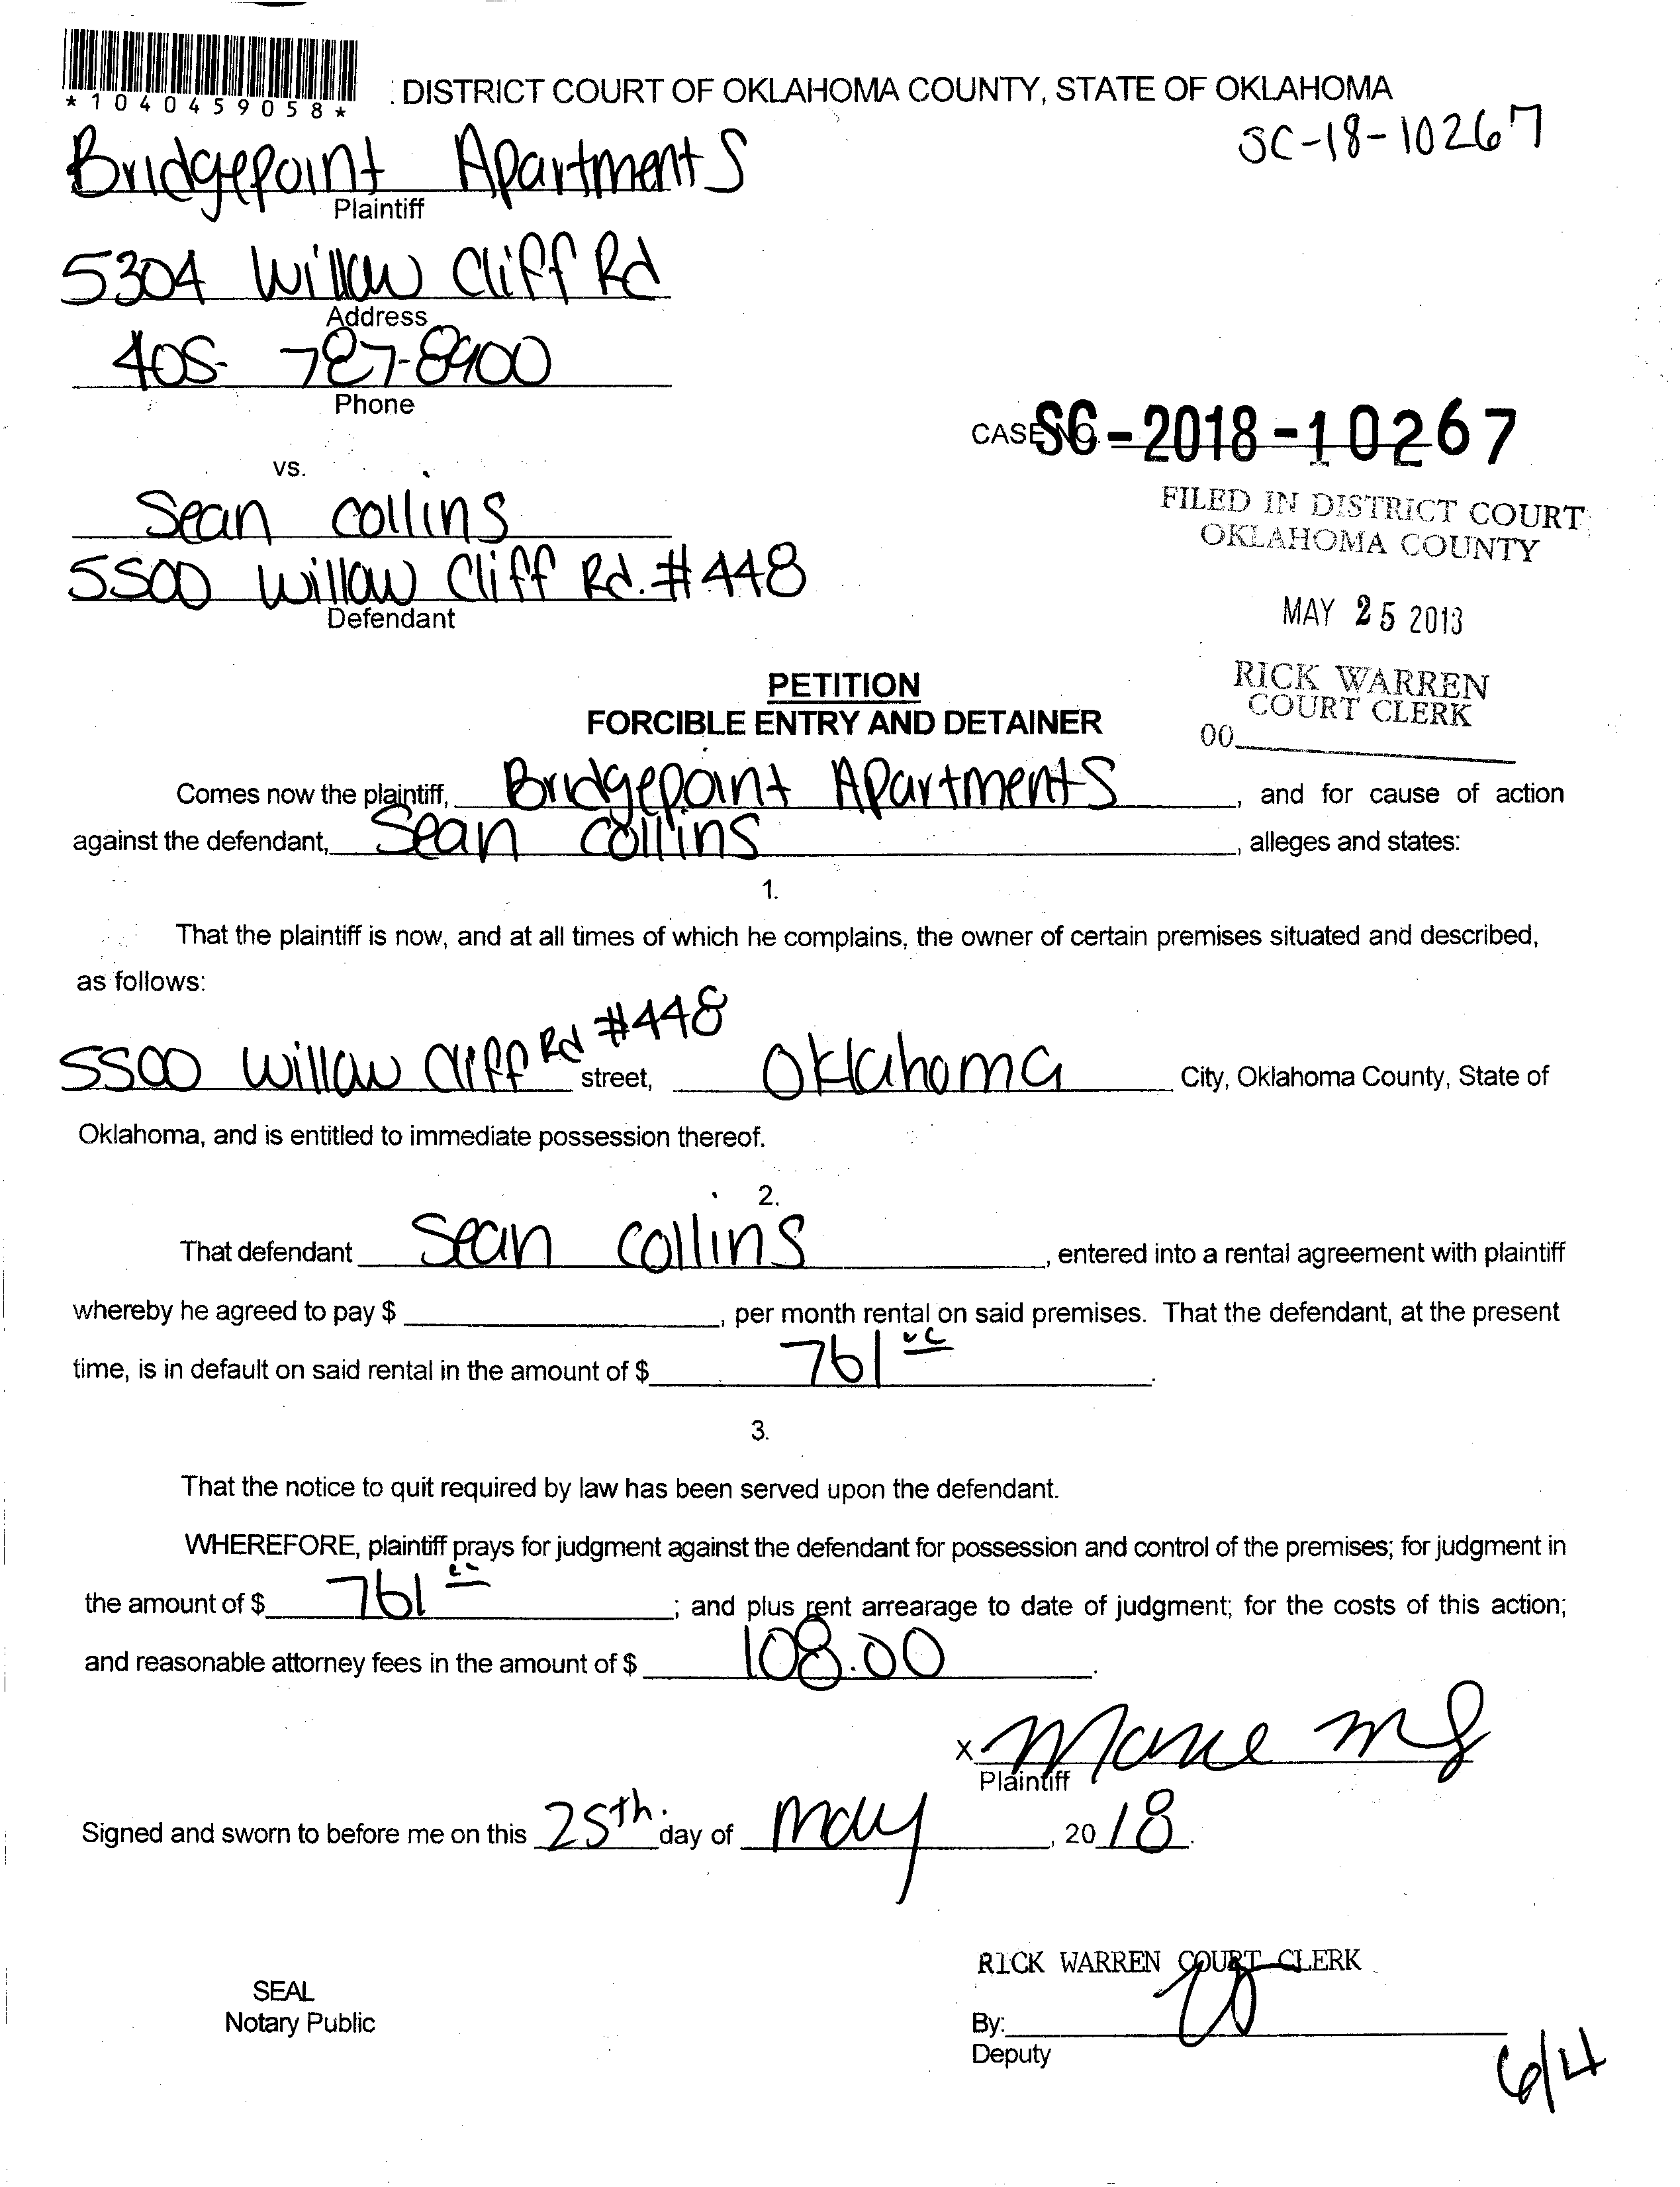 *1040459058*
: DISTRICT COURT OF OKLAHOMA COUNTY, STATE OF OKLAHOMA
SC-18-10267
Bridgepoint Apartments
Plaintiff
5304 Willow Cliff Rd
Address
405- 787-8900
Phone
CASE NO. SC-2018-10267
vs.
FILED IN DISTRICT COURT
OKLAHOMA COUNTY
Sean Collins
5500 Willow Cliff Rd. #448
Defendant
MAY 25 2018
RICK WARREN
COURT CLERK
00
PETITION
FORCIBLE ENTRY AND DETAINER
Comes now the plaintiff, Bridgepoint Apartments, and for cause of action
against the defendant, Sean Collins, alleges and states:
1.
That the plaintiff is now, and at all times of which he complains, the owner of certain premises situated and described,
as follows:
5500 Willow Cliff Rd #448 street, Oklahoma City, Oklahoma County, State of
Oklahoma, and is entitled to immediate possession thereof.
2.
That defendant Sean Collins, entered into a rental agreement with plaintiff
whereby he agreed to pay $ , per month rental on said premises. That the defendant, at the present
time, is in default on said rental in the amount of $ 761.
3.
That the notice to quit required by law has been served upon the defendant.
WHEREFORE, plaintiff prays for judgment against the defendant for possession and control of the premises; for judgment in
the amount of $ 761 ; and plus rent arrearage to date of judgment; for the costs of this action;
and reasonable attorney fees in the amount of $ 108.00.
X
Plaintiff
Signed and sworn to before me on this 25th day of May, 2018.
RICK WARREN COURT CLERK
SEAL
Notary Public
By:
Deputy
6/4